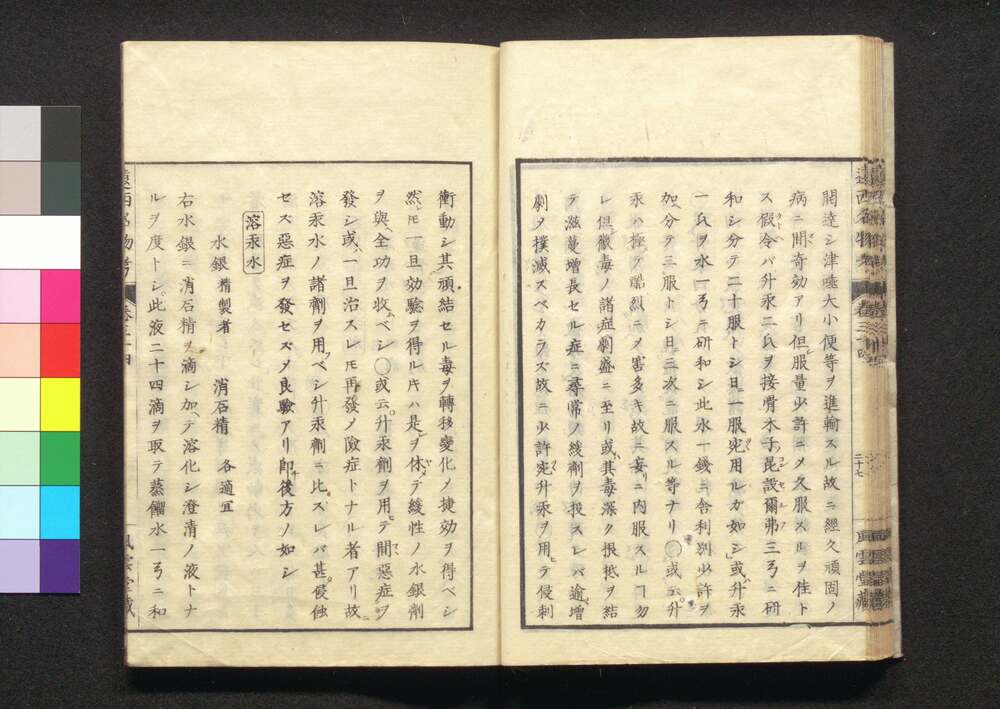 開達シ津唾大小便等ヲ進輸スル故ニ經久頑固ノ
病ニ間奇効アリ但服量少許ニメ久服スルヲ佳ト
ス假令バ升汞二氏ヲ接骨木子昆設爾弗三弓ニ研
和シ分テ二十服トシ日一服宛用ルカ如シ或升汞
一氏ヲ水一弓ニ研和シ此水一錢ニ舎利別少許ヲ
加分テ三服トシ日三次ニ服スル等ナリ〇或云升
汞ハ極テ酷烈ニメ害多キ故ニ妄ニ内服スルヿ勿
レ但黴毒ノ諸症劇盛ニ至リ或其毒深ク根柢ヲ結
テ滋蔓増長セル症ニ尋常ノ緩劑ヲ投スレバ逾増
劇ヲ撲滅スベカラズ故ニ少許宛升汞ヲ用ヒテ侵刺
遠西名物考
二十七
風雲堂藏
衝動シ其頑結セル毒ヲ轉移變化ノ捷効ヲ得ベシ
然𪜈一旦効驗ヲ得ル𪜈ハ是ヲ休テ緩性ノ水銀劑
ヲ與全功ヲ收ベシ〇或云升汞劑ヲ用テ間惡症ヲ
發シ或一旦治スレ𪜈再發ノ險症トナル者アリ故ニ
溶汞水ノ諸劑ヲ用ベシ升汞劑ニ比スレバ甚侵蝕
セス惡症ヲ發セズメ良驗アリ即後方ノ如シ
溶汞水
水銀精製者 消石精 各適宜
右水銀ニ消石精ヲ滴シ加テ溶化シ澄清ノ液トナ
ルヲ度トシ此液二十四滴ヲ取テ蒸餾水一弓ニ和